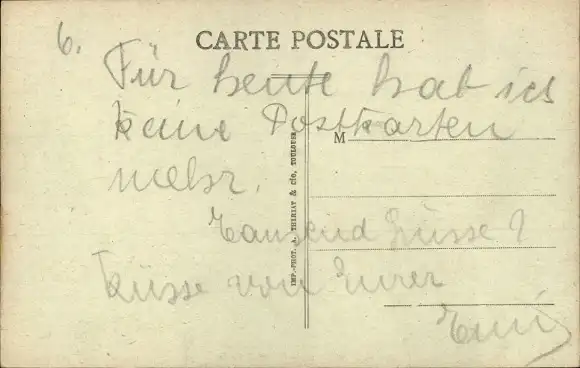 6.
CARTE POSTALE
Für heute hab ich
keine Postkarten
mehr.
M
IMP.-PHOT. A. THIRIAT & Cie, TOULOUSE
Tausend Grüsse &
Küsse von Eurer